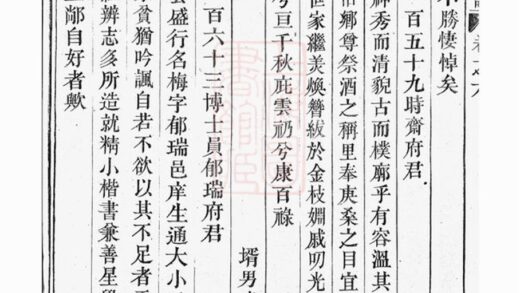 卷之六
不勝悽悼矣
百五十九時齋府君
神秀而清貌古而樸廓乎有容溫其
鄉尊祭酒之稱里奉庚桑之目宜
世家繼美煥簪紱於金枝婣戚叨光
兮亘千秋庇雲礽兮康百祿
壻男
百六十三博士員郁瑞府君
盛行名梅字郁瑞邑庠生通大小
貧猶吟諷自若不欲以其不足者
辨志多所造就精小楷書兼善星
鄙自好者歟